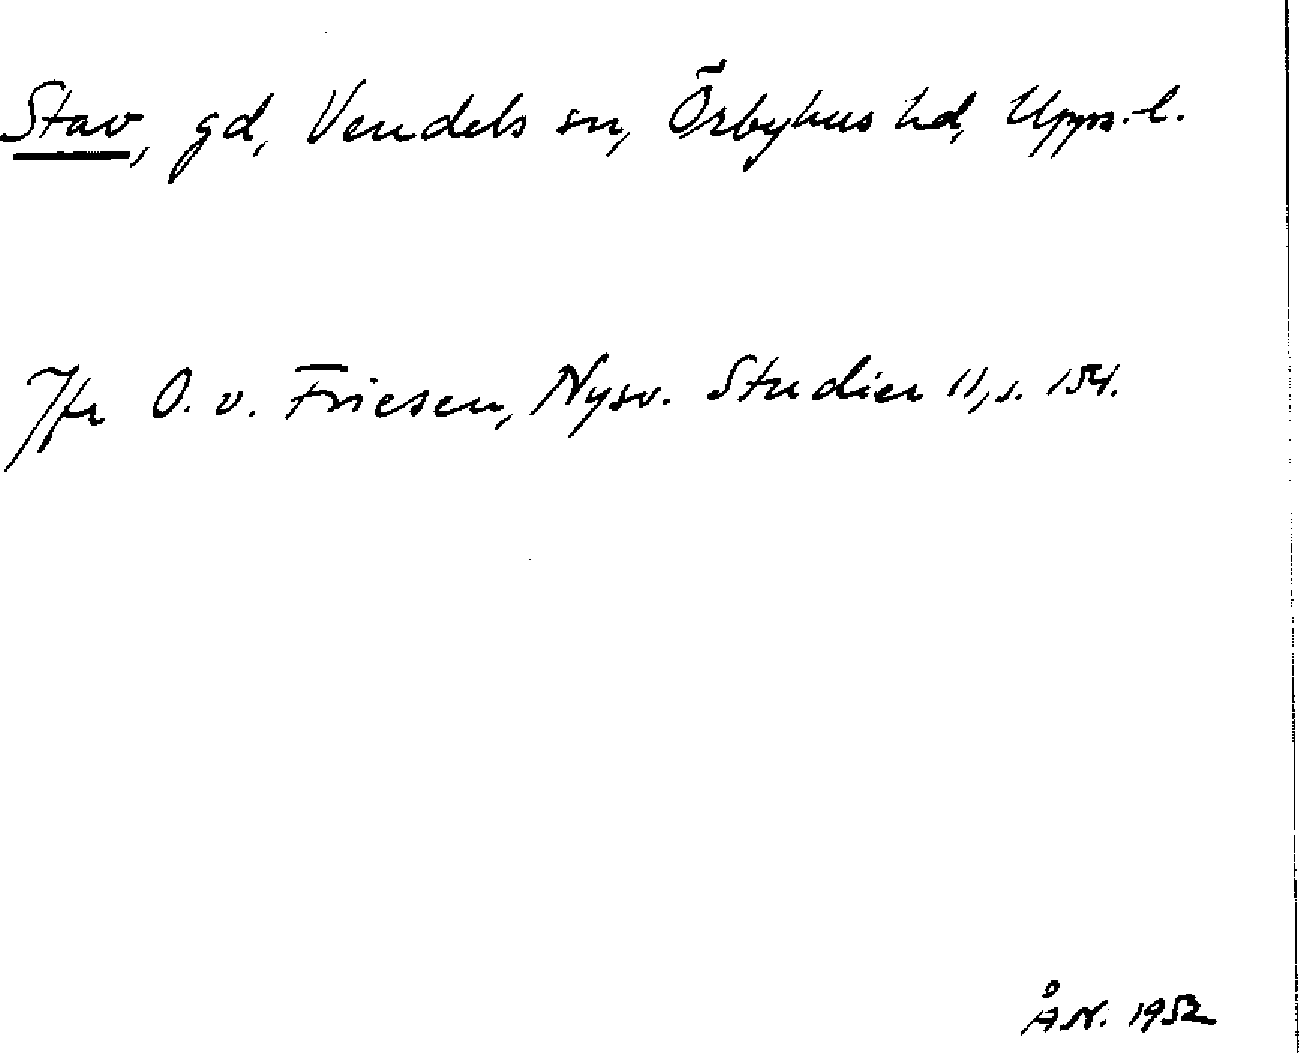 Stav, gd, Vendels sn, Örbyhus hd, Upps. l.
Jfr O. v. Friesen, Nysv. Studier 11, s. 154.
Å N. 1952